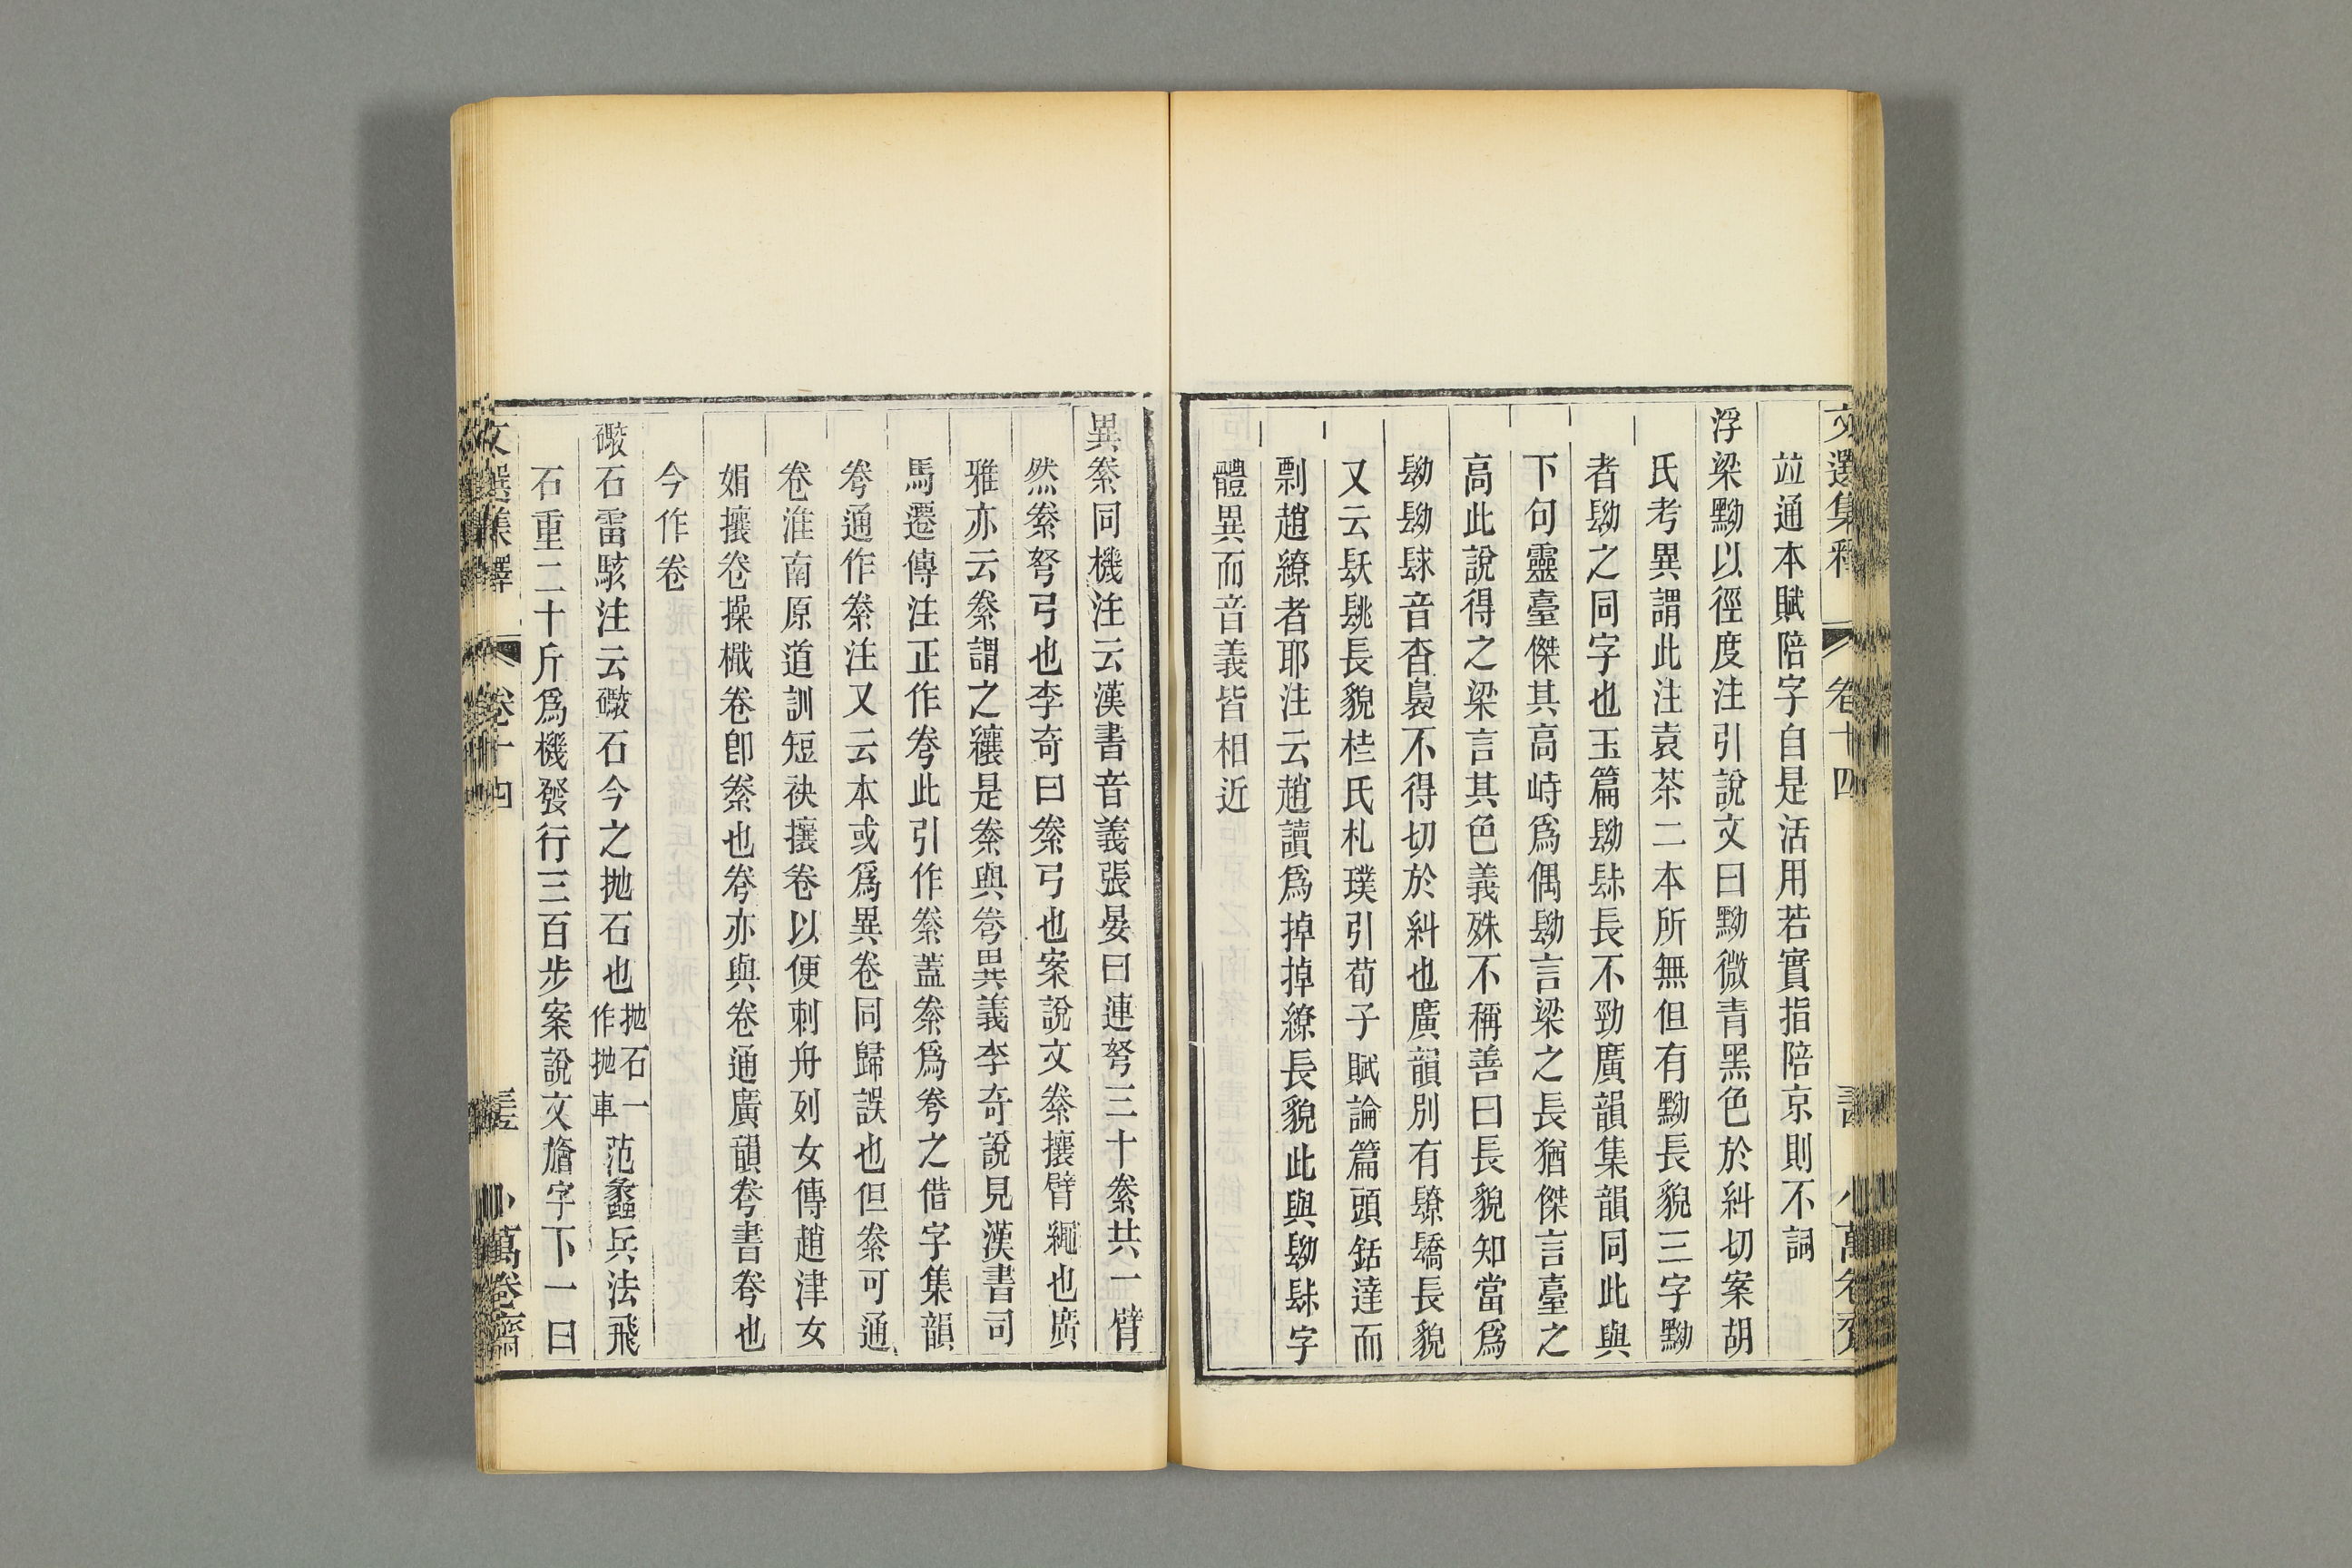 文選集釋 卷十四 小萬卷齋
竝通本賦陪字自是活用若實指陪京則不詞
浮梁黝以徑度注引說文曰黝微青黑色於糾切案胡
氏考異謂此注袁茶二本所無但有黝長貌三字黝
者䦊之同字也玉篇䦊镺長不勁廣韻集韻同此與
下句靈臺傑其高峙爲偶䦊言梁之長猶傑言臺之
高此說得之梁言其色義殊不稱善曰長貌知當爲
䦊䦊䦆音杳裊不得切於糾也廣韻別有镽䥄長貌
又云镺䠷長貌桂氏札璞引荀子賦論篇頭銛達而
剽趙繚者耶注云趙讀爲掉掉繚長貌此與䦊䦆字
體異而音義皆相近
異絭同機注云漢書音義張晏曰連弩三十絭共一臂
然絭弩弓也李奇曰絭弓也案說文絭攘臂繩也廣
雅亦云絭謂之纕是絭與弮異義李奇說見漢書司
馬遷傳注正作弮此引作絭蓋絭爲弮之借字集韻
弮通作絭注又云本或爲異卷同歸誤也但絭可通
卷淮南原道訓短袂攘卷以便刺舟列女傳趙津女
娟攘卷操檝卷卽絭也弮亦與卷通廣韻弮書弮也
今作卷
礮石雷駭注云礮石今之抛石也抛石一作抛車范蠡兵法飛
石重二十斤爲機發行三百步案說文旝字下一曰
文選集釋 卷十四 小萬卷齋